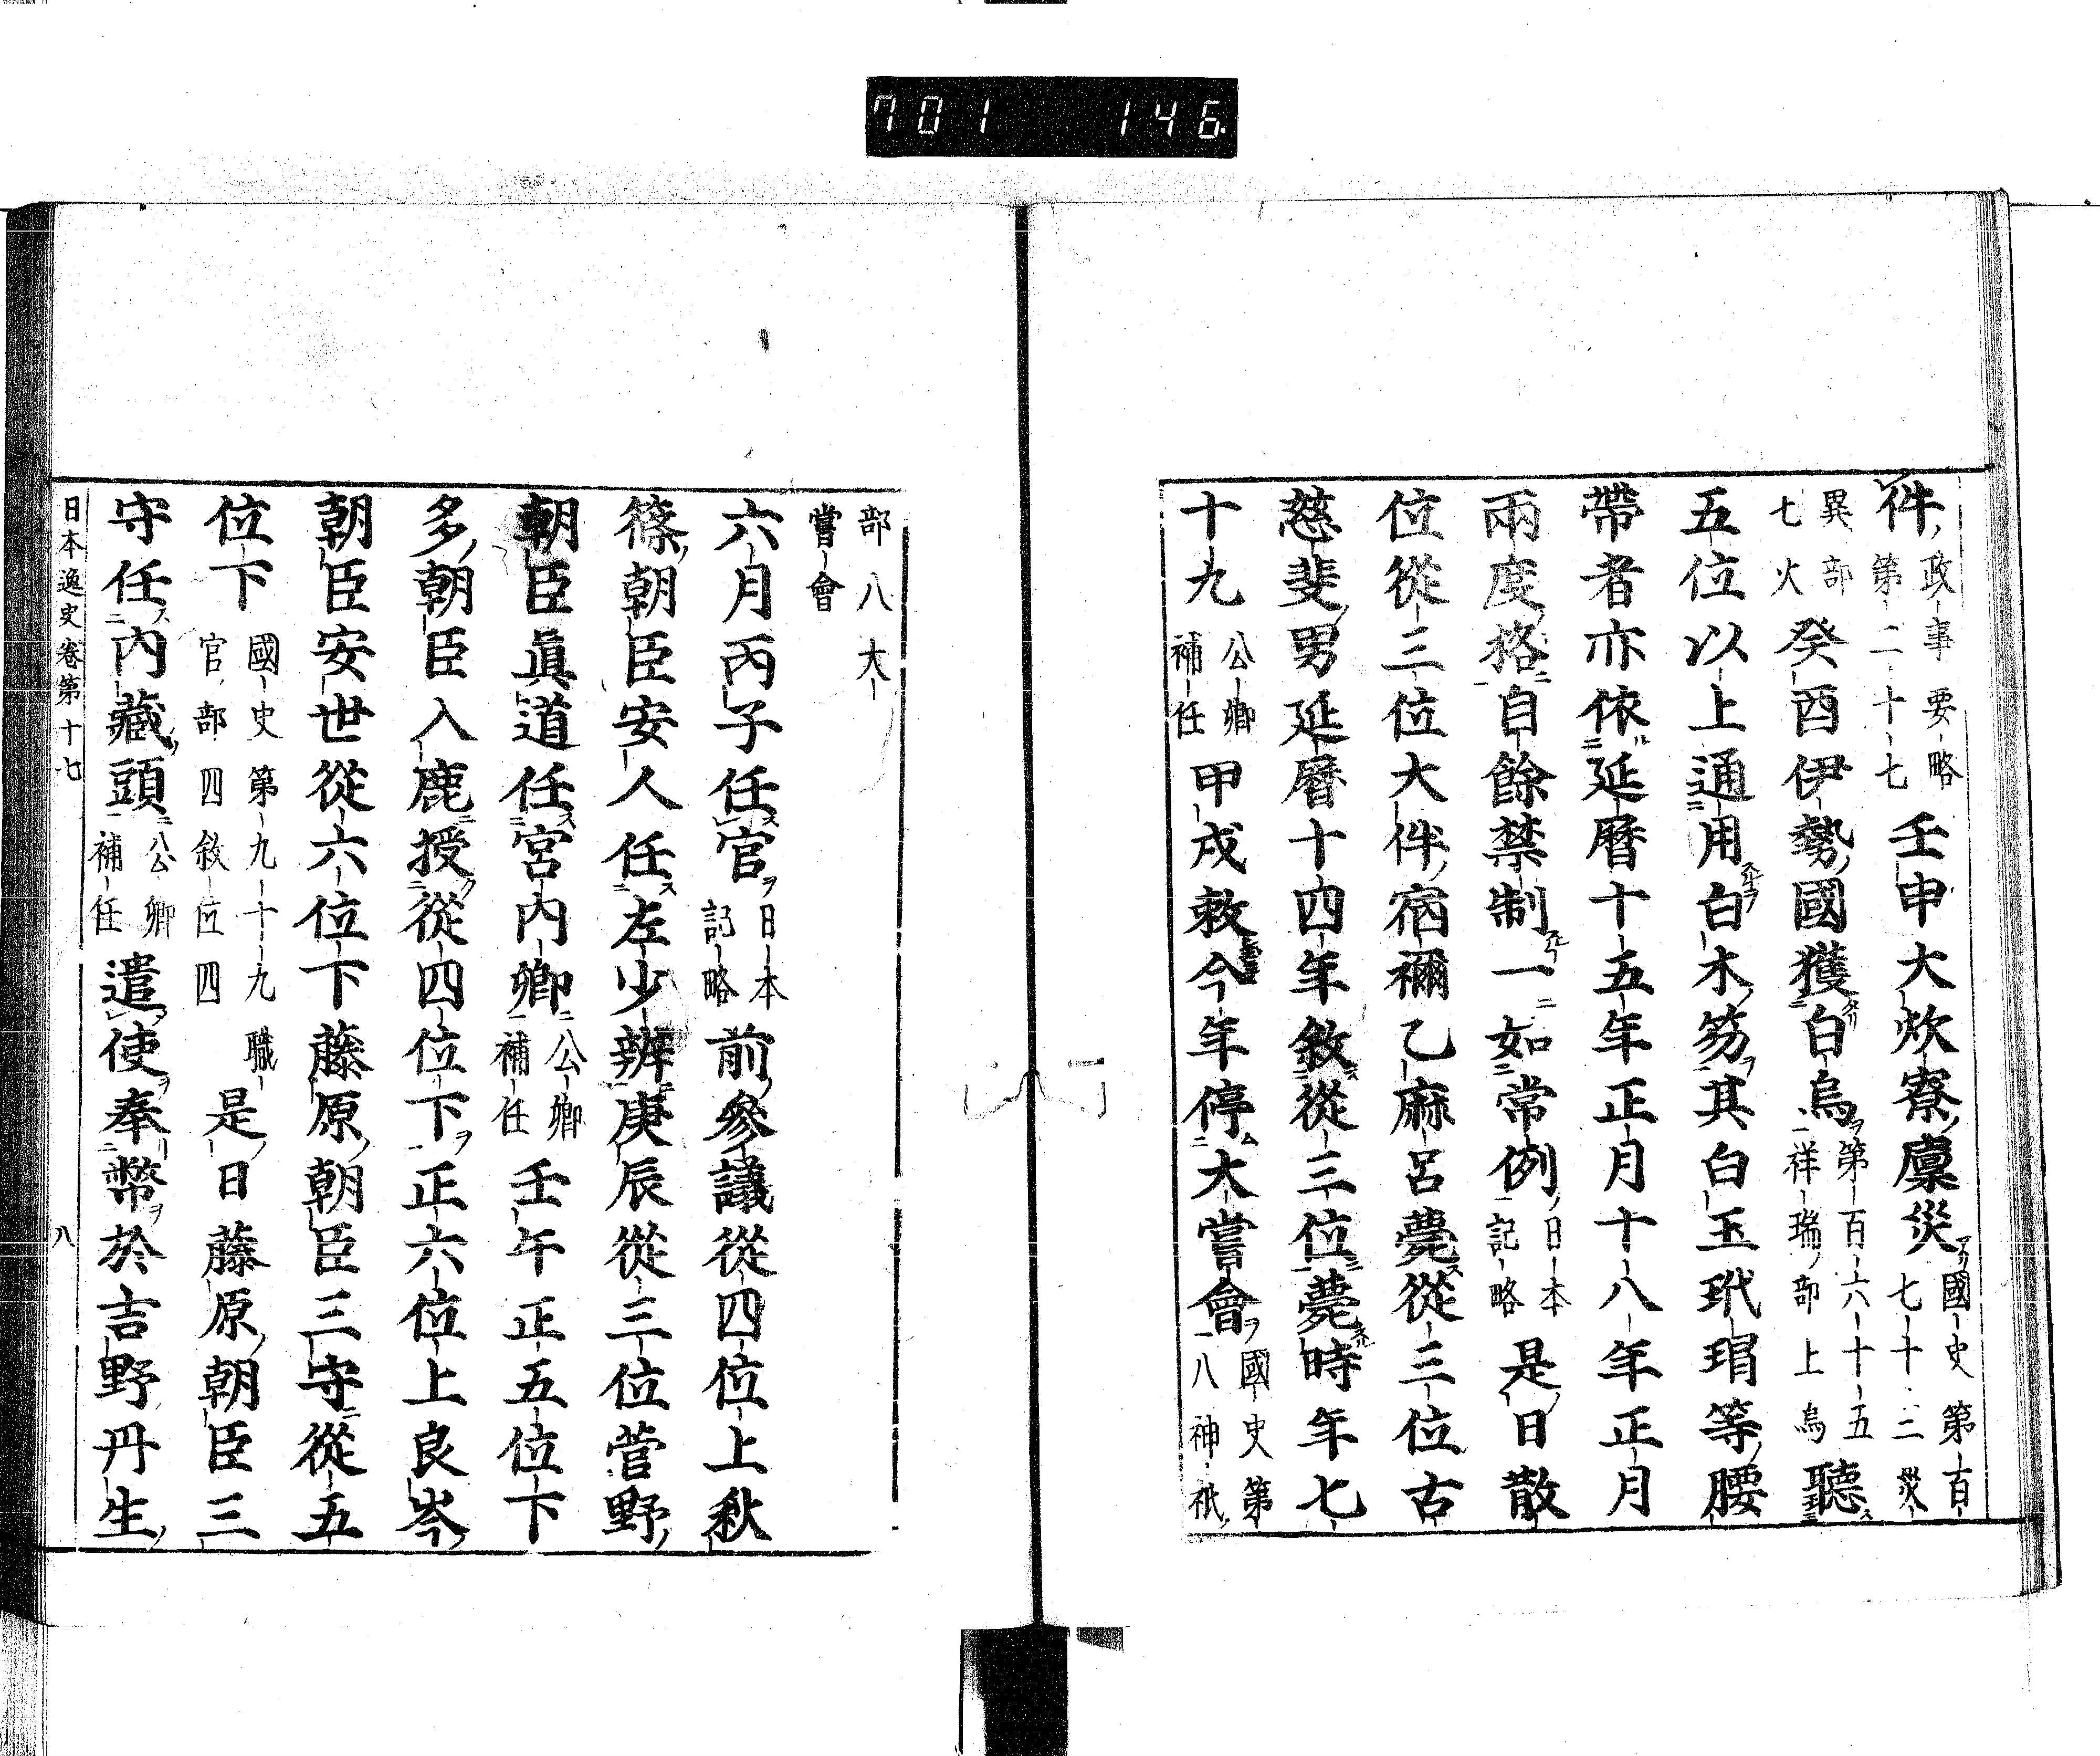 701 146
件政事要略
第二十七壬申大炊寮廩災國史第百
七十三災
異部
七火癸酉伊勢國獲白烏第百六十五
祥瑞部上烏聽
五位以上通用白木笏其白玉玳瑁等腰
帶者亦依延曆十五年正月十八年正月
兩度格自餘禁制一如常例日本
記略是日散
位從三位大伴宿禰乙麻呂薨從三位古
慈斐男延曆十四年敘從三位薨時年七
十九公卿
補任甲戌敕今年停大嘗會國史第
八神祇
部八大
嘗會
六月丙子任官日本
記略前參議從四位上秋
篠朝臣安人任左少辨庚辰從三位菅野
朝臣眞道任宮內卿公卿
補任壬午正五位下
多朝臣入鹿授從四位下正六位上良岑
朝臣安世從六位下藤原朝臣三守從五
位下國史第九十九職
官部四敘位四是日藤原朝臣三
守任內藏頭公卿
補任遣使奉幣於吉野丹生
日本逸史卷第十七 八